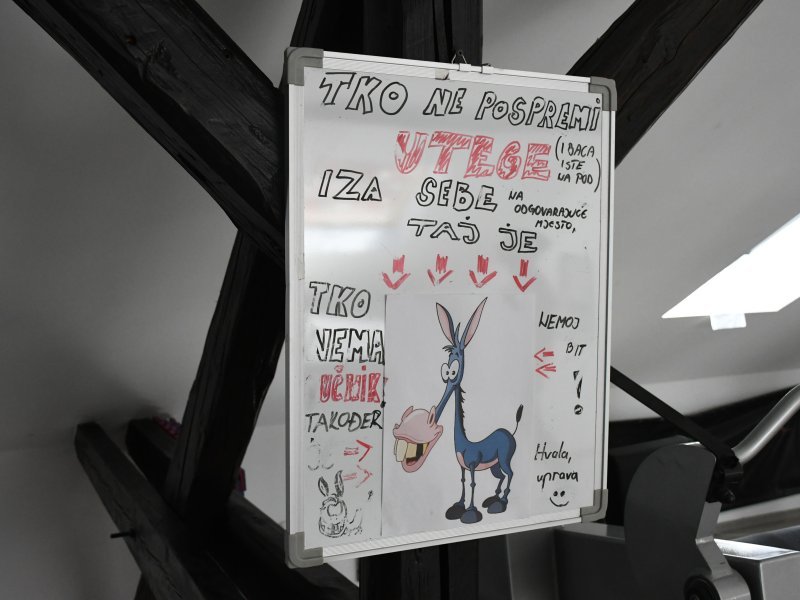 TKO NE POSPREMI
UTEGE
(I BACA
ISTE
NA POD)
IZA SEBE NA
ODGOVARAJUĆE
MJESTO,
TAJ JE
TKO
NEMA
UČNIK
TAKOĐER
NEMOJ
BIT
!
Hvala,
uprava